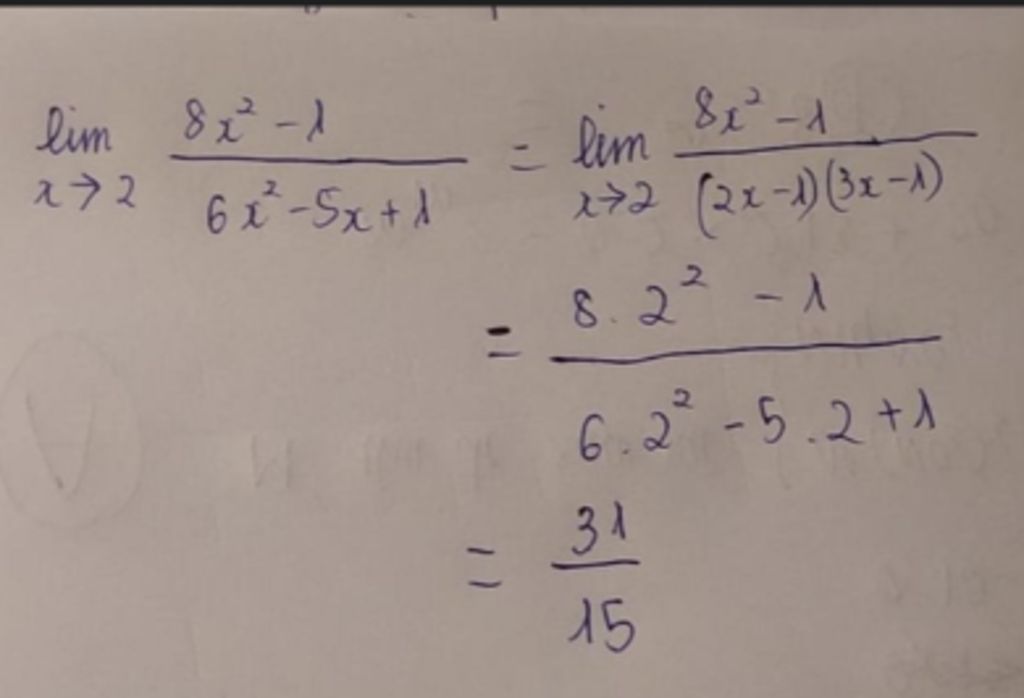 lim x→2 (8x² - 1)/(6x² - 5x + 1) = lim x→2 (8x² - 1)/((2x - 1)(3x - 1))
= (8 . 2² - 1)/(6 . 2² - 5 . 2 + 1)
= 31/15